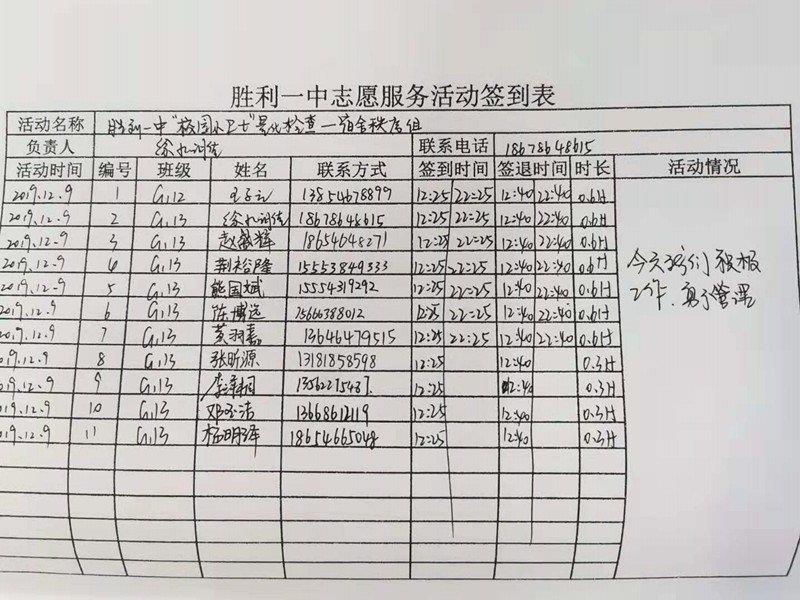 胜利一中志愿服务活动签到表
活动名称 胜利一中"校园小卫士"量化检查—宿舍秩序组
负责人 联系电话 18678648615
活动时间 编号 班级 姓名 联系方式 签到时间 签退时间 时长 活动情况
2019.12.9 1 G.12 13854678899 12:25 22:25 12:40 22:40 0.6H
2019.12.9 2 G.13 18678648615 12:25 22:25 12:40 22:40 0.6H
2019.12.9 3 G.13 赵嘉辉 18654648271 12:25 22:25 12:40 22:40 0.6H
2019.12.9 4 G.13 荆裕隆 15553849333 12:25 22:25 12:40 22:40 0.6H
2019.12.9 5 G.13 熊国斌 15554319292 12:25 22:25 12:40 22:40 0.6H
2019.12.9 6 G.13 陈博远 12:25 22:25 12:40 22:40 0.6H
2019.12.9 7 G.13 黄羽嘉 13646479515 12:25 22:25 12:40 22:40 0.6H
2019.12.9 8 G.13 张昕源 13181858598 12:25 12:40 0.3H
2019.12.9 9 G.13 12:25 12:40 0.3H
2019.12.9 10 G.13 邓玉洁 13668612119 12:25 12:40 0.3H
2019.12.9 11 G.13 杨明泽 18654665048 12:25 12:40 0.3H
今天我们积极
工作,
管理